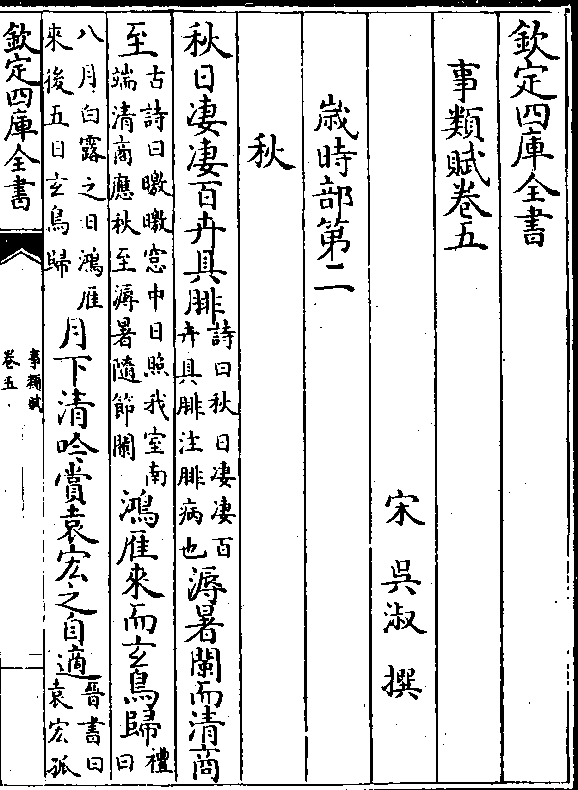 欽定四庫全書
事類賦卷五
宋 吳淑 撰
歳時部第二
秋
秋日凄凄百卉具腓詩曰秋日凄凄百卉具腓注腓病也溽暑闌而清商
至古詩曰曒曒窓中日照我室南端清商應秋至溽暑隨節闌鴻雁來而玄鳥歸禮曰
八月白露之日鴻雁來後五日玄鳥歸月下清吟賞袁宏之自適晉書曰袁宏孤
欽定四庫全書
事類賦
卷五